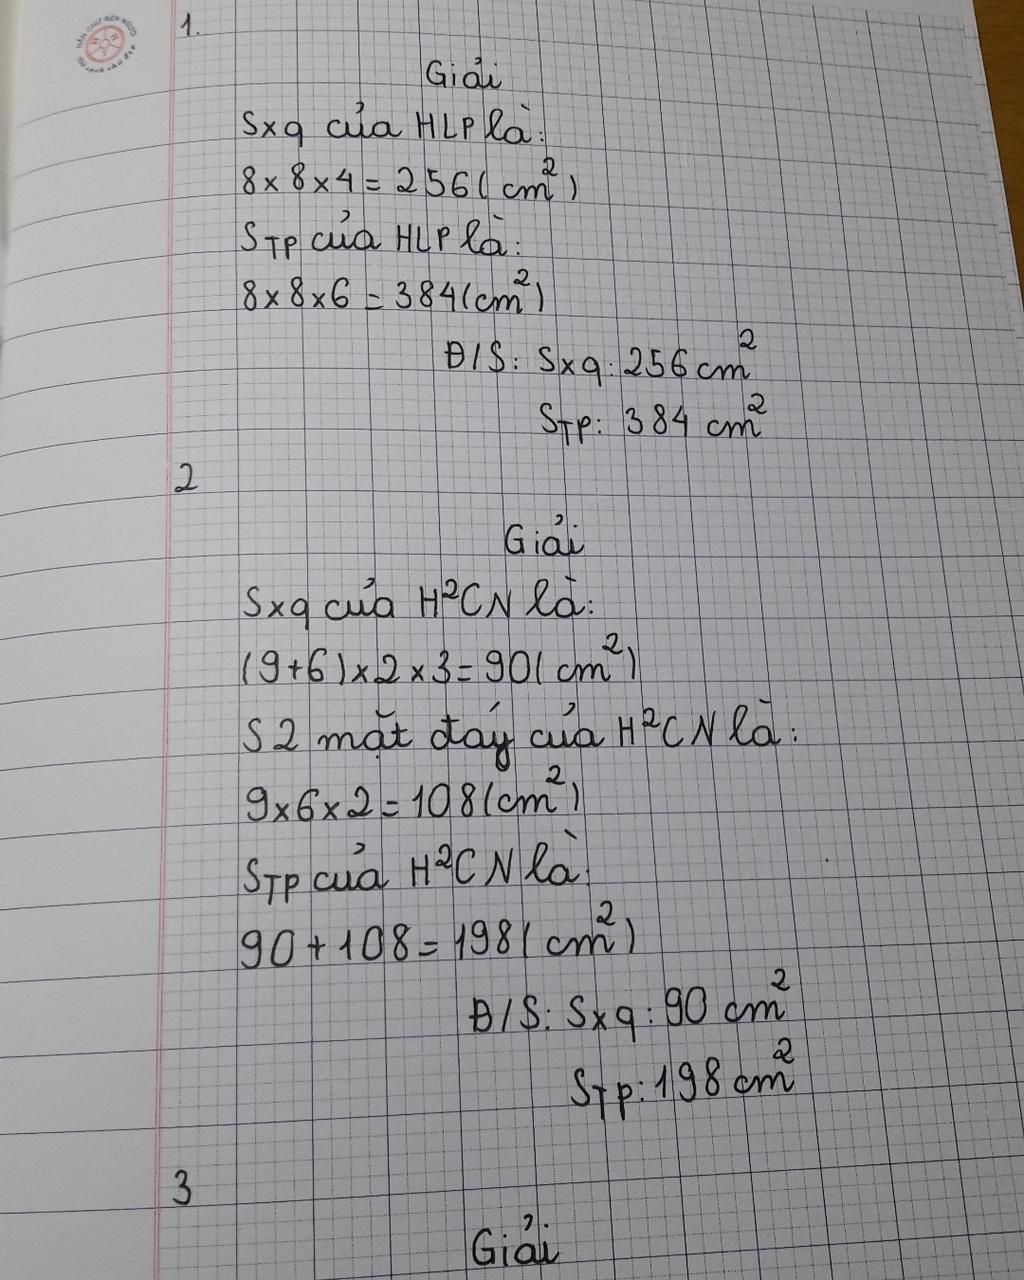 1.
Giải
Sxq của HLP là:
8 × 8 × 4 = 256 ( cm²)
STP của HLP là:
8 × 8 × 6 = 384 (cm²)
Đ/S: Sxq: 256 cm²
STP: 384 cm²
2
Giải
Sxq của H²CN là:
(9+6) × 2 × 3 = 90 ( cm²)
S 2 mặt đáy của H²CN là:
9 × 6 × 2 = 108 (cm²)
STP của H²CN là:
90 + 108 = 198 ( cm²)
Đ/S: Sxq: 90 cm²
STP: 198 cm²
3
Giải